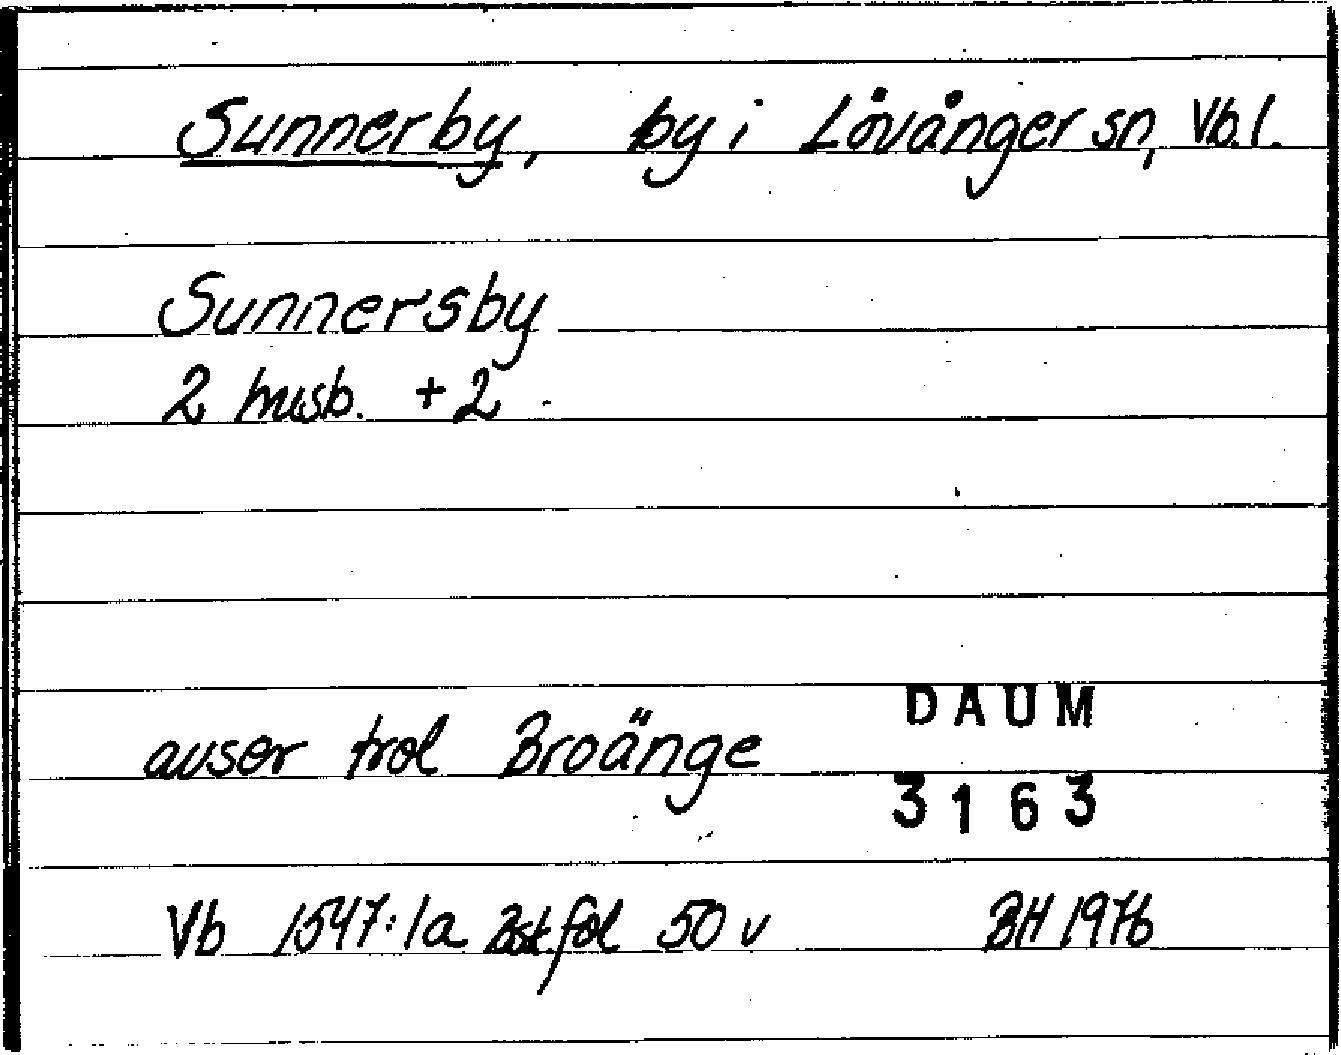 Sunnerby, by i Lövånger sn, Vb.l.
Sunnersby
2 husb. + 2
avser trol Broänge
DAUM
3163
Vb 1547:1a fol 50 v BH 1976